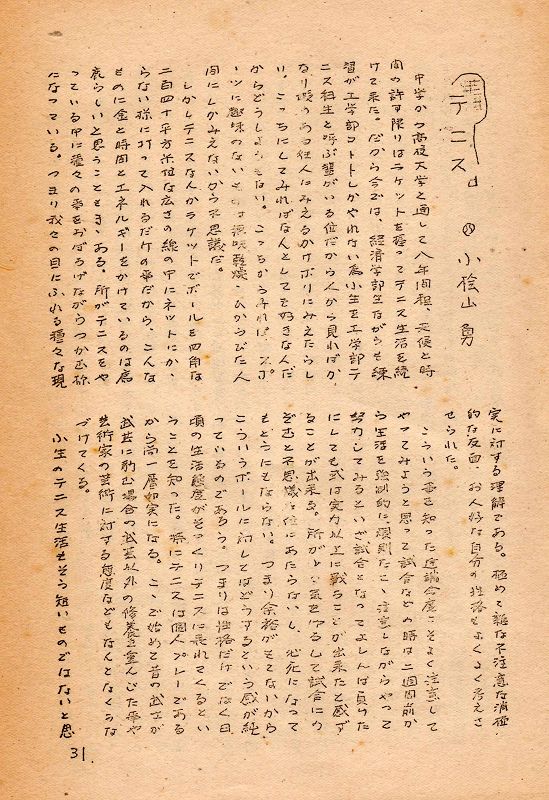 テニス
④ 小桧山 勇
中学から高校大学と通して八年間程、天候と時
間の許す限りはラケットを握ってテニス生活を続
けて来た。だから今では、経済学部生ながらも練
習が工学部コートしかやれない為小生を工学部テ
ニス科生と呼ぶ輩がいる位だから人から見れば、か
なり
り。こっちにしてみればなんとしても好きなんだ
からどうしようもない。こっちからみれば、スポ
ーツに趣味のない
間にしかみえないから不思議だ。
しかしテニスなんかラケットでボールを四角な
二百四十平方米位な広さの線の中にネットにかゝ
らない様に打って入れるだけの事だから、こんな
ものに金と時間とエネルギーをかけているのは馬
鹿らしいと思うこともまゝある。所がテニスをや
っている中に種々の事をおぼろげながらつかめる様
になっている。つまり我々の目にふれる種々な現
実に対する理解である。極めて雑な不注意な消極
的な反面、お人好な自分の性格をよくよく考えさ
せられた。
こういう事を知った以上今度こそよく注意して
やってみようと思って試合などの時は二週間前か
ら生活を強制的に規則正しく注意しながらやって
努力してみるといざ試合となってよしんば負けた
にしても或は実力以上に戦うことが出来たと感ず
ることが出来る。所がいざ気をゆるして試合にの
ぞむと不思議な位にあたらないし、必死になって
もどうにもならない。つまり余裕がもてないから
こういうボールに対してはどうするという感が鈍
っているのであろう。つまりは性格だけでなく日
頃の生活態度がそっくりテニスに表れてくるとい
うことを知った。殊にテニスは個人プレーである
から尚一層如実になる。こゝで始めて昔の武士が
武芸に励む場合の武芸以外の修養を重んじた事や
芸術家の芸術に対する態度などもなんとなくうな
づけてくる。
小生のテニス生活もそう短いものではないと思
31